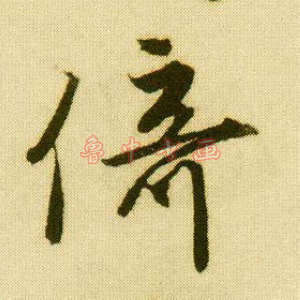 侪
鲁中书画